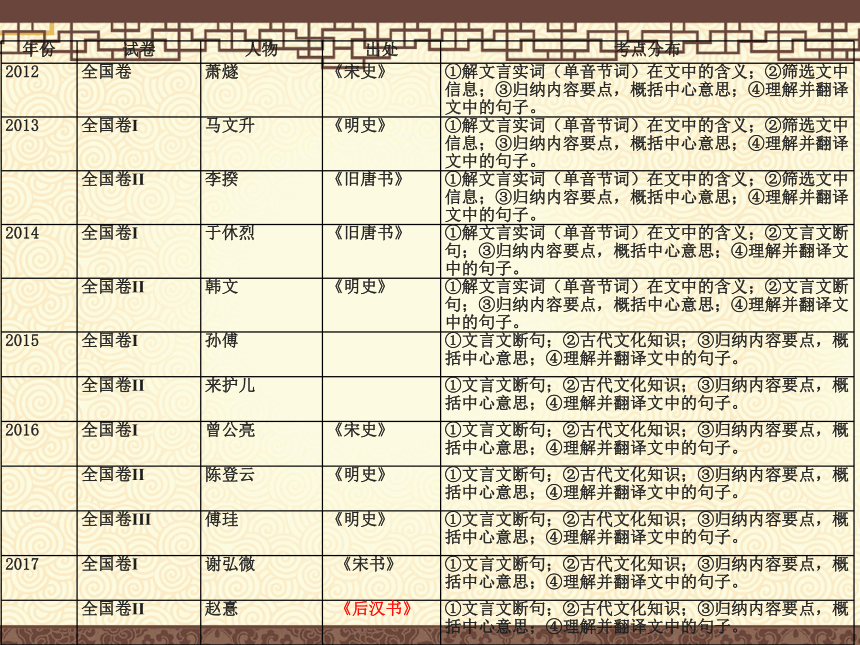 年份 试卷 人物 出处 考点分布
2012 全国卷 萧燧 《宋史》 ①解文言实词（单音节词）在文中的含义；②筛选文中
信息；③归纳内容要点，概括中心意思；④理解并翻译
文中的句子。
2013 全国卷I 马文升 《明史》 ①解文言实词（单音节词）在文中的含义；②筛选文中
信息；③归纳内容要点，概括中心意思；④理解并翻译
文中的句子。
全国卷II 李揆 《旧唐书》 ①解文言实词（单音节词）在文中的含义；②筛选文中
信息；③归纳内容要点，概括中心意思；④理解并翻译
文中的句子。
2014 全国卷I 于休烈 《旧唐书》 ①解文言实词（单音节词）在文中的含义；②文言文断
句；③归纳内容要点，概括中心意思；④理解并翻译文
中的句子。
全国卷II 韩文 《明史》 ①解文言实词（单音节词）在文中的含义；②文言文断
句；③归纳内容要点，概括中心意思；④理解并翻译文
中的句子。
2015 全国卷I 孙傅 ①文言文断句；②古代文化知识；③归纳内容要点，概
括中心意思；④理解并翻译文中的句子。
全国卷II 来护儿 ①文言文断句；②古代文化知识；③归纳内容要点，概
括中心意思；④理解并翻译文中的句子。
2016 全国卷I 曾公亮 《宋史》 ①文言文断句；②古代文化知识；③归纳内容要点，概
括中心意思；④理解并翻译文中的句子。
全国卷II 陈登云 《明史》 ①文言文断句；②古代文化知识；③归纳内容要点，概
括中心意思；④理解并翻译文中的句子。
全国卷III 傅珪 《明史》 ①文言文断句；②古代文化知识；③归纳内容要点，概
括中心意思；④理解并翻译文中的句子。
2017 全国卷I 谢弘微 《宋书》 ①文言文断句；②古代文化知识；③归纳内容要点，概
括中心意思；④理解并翻译文中的句子。
全国卷II 赵憙 《后汉书》 ①文言文断句；②古代文化知识；③归纳内容要点，概
括中心意思；④理解并翻译文中的句子。